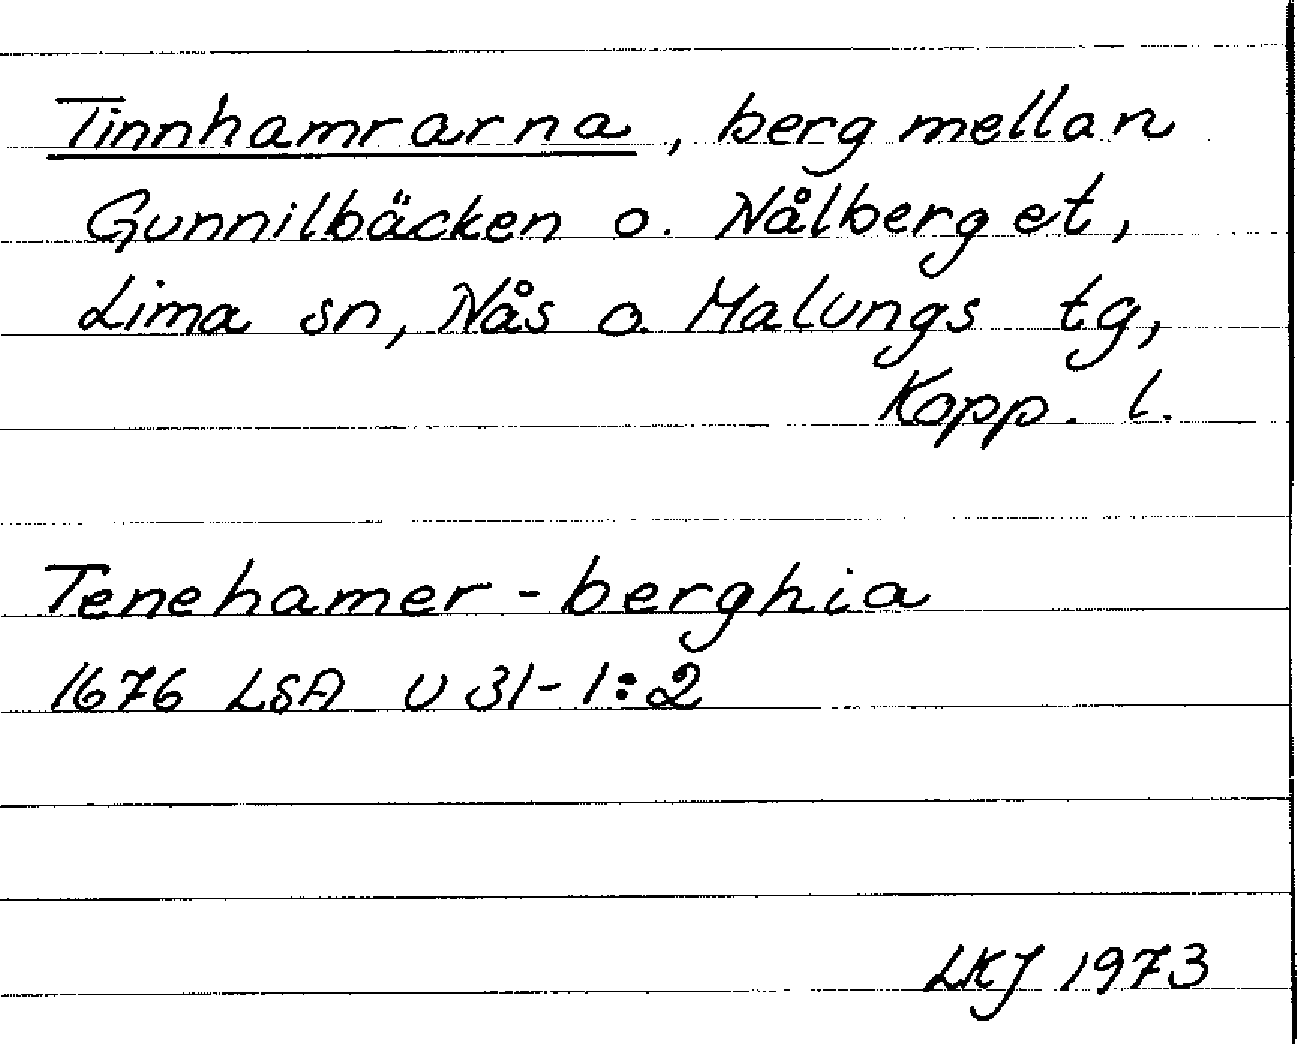 Tinnhamrarna, berg mellan
Gunnilbäcken o. Nålberget,
Lima sn, Nås o. Malungs tg,
Kopp. l.
Tenehamer-berghia
1676 LSA U 31-1:2
LKJ 1973